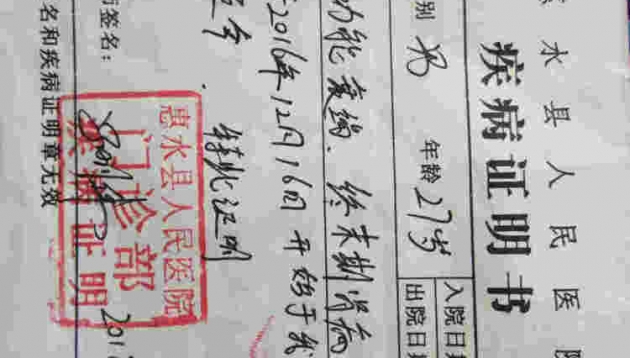 惠水县人民医院
疾病证明书
别 男 年龄 27岁 入院日期
出院日期
功能衰竭、终末期肾病
2016年12月16日开始于我
特此证明
签名：
名和疾病证明章无效
惠水县人民医院
门诊部
疾病证明
201